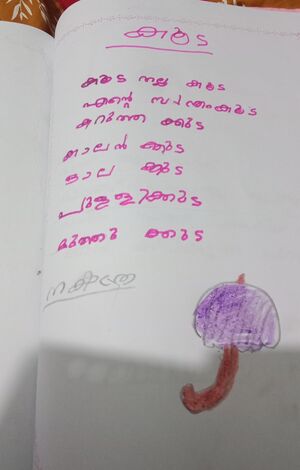 കുട
കുട നല്ല കുട
എന്റെ സ്വന്തംകുട
കറുത്ത ക്കുട
കാലൻ ക്കുട
ക്കുട
പുള്ളിക്കുട
മുത്തു ക്കുട